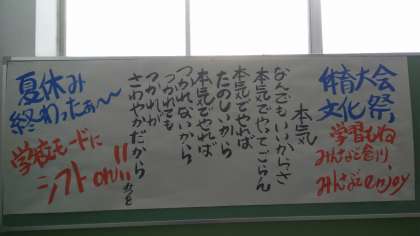 体育大会
文化祭,
学習もね
みんなで
みんなでenjoy
本気
なんでもいいからさ
本気でやってごらん
本気でやれば
たのしいから
本気でやれば
つかれないから
つかれても
つかれが
さわやかだから
みつを
夏休み
終わったぁ～～
学校モードに
シフトoh!!